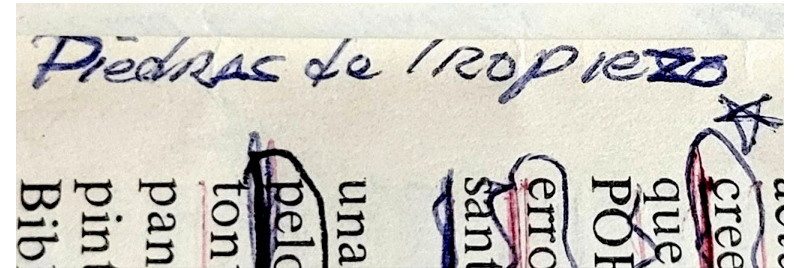 Piedras de Tropiezo
cree
que
POR
erro
sant
una
pelo
ton
pan
pint
Bibl